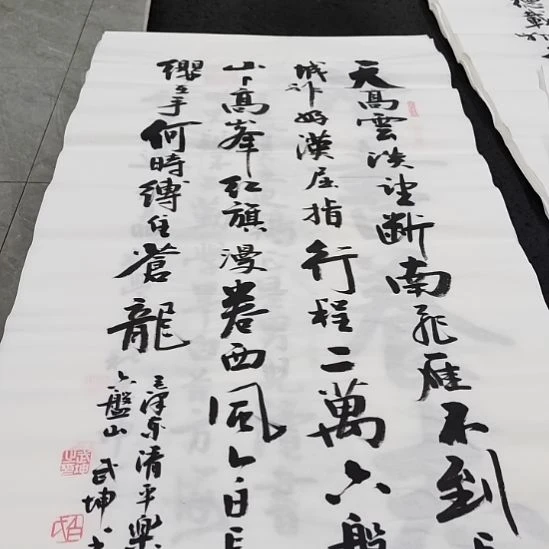 天高雲淡望断南飛雁不到
城非好漢屈指行程二萬六盤
山上高峯红旗漫卷西風今日長
纓在手何時縛住蒼龍
毛澤东清平樂
六盤山 武坤